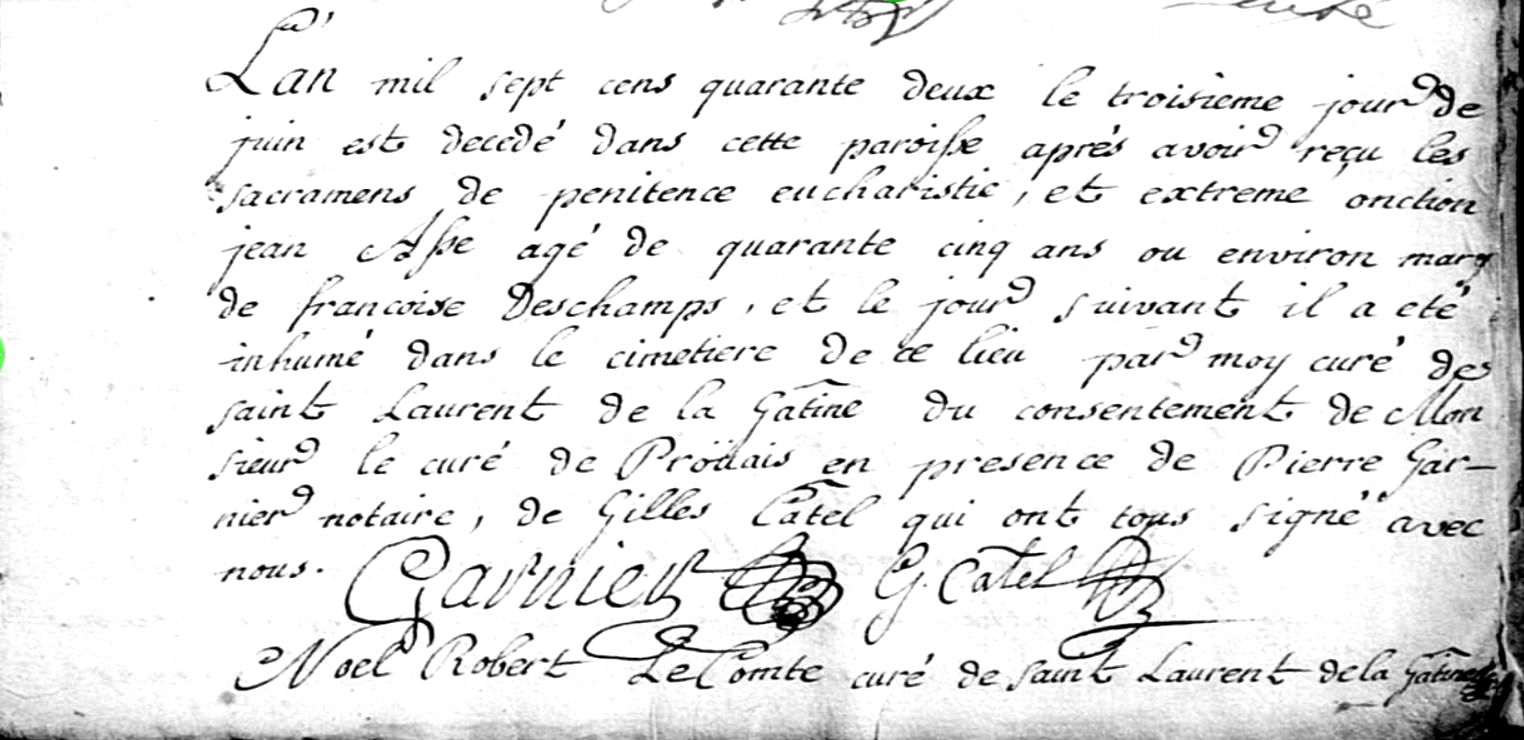 L'an mil sept cens quarante deux le troisieme jour de
juin est decedé dans cette paroisse aprés avoir reçu les
sacramens de penitence eucharistie, et extreme onction
jean Asse agé de quarante cinq ans ou environ mary
de francoise Deschamps, et le jour suivant il a eté
inhumé dans le cimetiere de ce lieu par moy curé de
saint Laurent de la Gâtine du consentement de Mon
sieur le curé de Proüais en presence de Pierre Gar-
nier notaire, de Gilles Câtel qui ont tous signé avec
nous. Garnier G. Câtel
Noel Robert LeComte curé de saint Laurent de la Gâtine